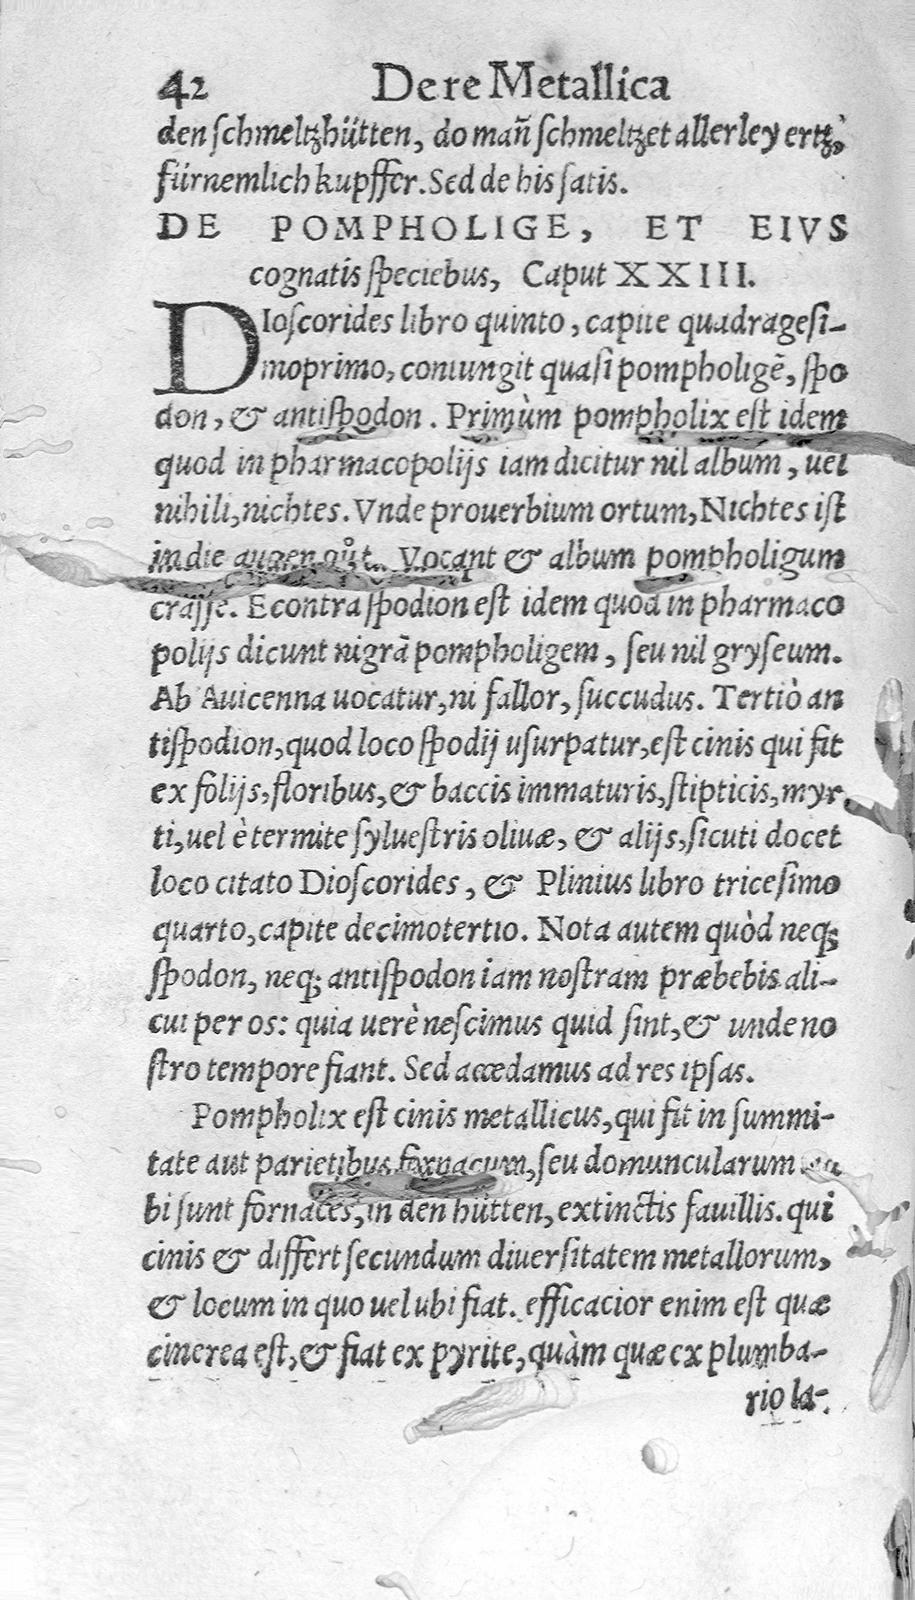 42 De re Metallica
den ſchmeltzhütten, do mañ ſchmeltzet allerley ertz,
fürnemlich kupffer. Sed de his ſatis.
DE POMPHOLIGE, ET EIVS
cognatis ſpeciebus, Caput XXIII.
DIoſcorides libro quinto, capite quadrageſi-
moprimo, coniungit quaſi pompholigẽ, ſpo
don, & antiſpodon. Primùm pompholix eſt idem
quod in pharmacopolijs iam dicitur nil album, uel
nihili, nichtes. Vnde prouerbium ortum, Nichtes iſt
in die augen gůt. Vocant & album pompholigum
craſſe. Econtra ſpodion eſt idem quod in pharmaco
polijs dicunt nigrã pompholigem, ſeu nil gryſeum.
Ab Auicenna uocatur, ni fallor, ſuccudus. Tertiò an
tiſpodion, quod loco ſpodij uſurpatur, eſt cinis qui fit
ex folijs, floribus, & baccis immaturis, ſtipticis, myr,
ti, uel è termite ſylueſtris oliuæ, & alijs, ſicuti docet
loco citato Dioſcorides, & Plinius libro triceſimo
quarto, capite decimotertio. Nota autem quòd neq;
ſpodon, neq; antiſpodon iam noſtram præbebis ali-
cui per os: quia uerè neſcimus quid ſint, & unde no
ſtro tempore fiant. Sed accedamus ad res ipſas.
Pompholix eſt cinis metallicus, qui fit in ſummi-
tate aut parietibus fornacum, ſeu domuncularum
bi ſunt fornaces, in den hütten, extinctis fauillis. qui
cinis & differt ſecundum diuerſitatem metallorum,
& locum in quo uel ubi fiat. efficacior enim eſt quæ
cinerea eſt, & fiat ex pyrite, quàm quæ ex plumba-
rio la-